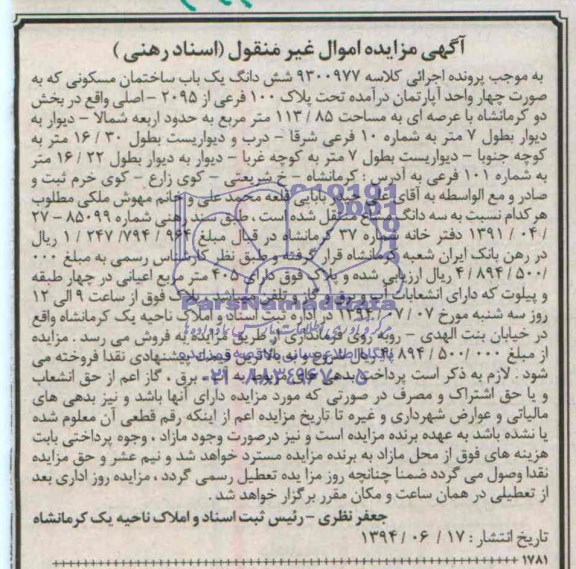 آگهی مزایده اموال غیر منقول (اسناد رهنی)
به موجب پرونده اجرائی کلاسه ۹۳۰۰۹۷۷ شش دانگ یک باب ساختمان مسکونی که به
صورت چهار واحد آپارتمان درآمده تحت پلاک ۱۰۰ فرعی از ۲۰۹۵ – اصلی واقع در بخش
دو کرمانشاه با عرصه ای به مساحت ۸۵ / ۱۱۳ متر مربع به حدود اربعه شمالا – دیوار به
دیوار بطول ۷ متر به شماره ۱۰ فرعی شرقا – درب و دیواریست بطول ۳۰ / ۱۶ متر به
کوچه جنوبا – دیواریست بطول ۷ متر به کوچه غربا – دیوار به دیوار بطول ۲۲ / ۱۶ متر
به شماره ۱۰۱ فرعی به آدرس : کرمانشاه – خ شریعتی – کوی زارع – کوی خرم ثبت و
صادر و مع الواسطه به آقای علی حیدر بابایی قلعه محمد علی و خانم مهوش ملکی مطلوب
هر کدام نسبت به سه دانگ مشاع منتقل شده است ، طبق سند رهنی شماره ۸۵۰۹۹ – ۲۷
/ ۰۴ / ۱۳۹۱ دفتر خانه شماره ۳۷ کرمانشاه در قبال مبلغ ۹۶۴ / ۷۹۴ / ۲۴۷ / ۱ ریال
در رهن بانک ایران شعبه کرمانشاه قرار گرفته و طبق نظر کارشناس رسمی به مبلغ ۰۰۰
/ ۵۰۰ / ۸۹۴ / ۴ ریال ارزیابی شده و پلاک فوق دارای ۴۰۵ متر مربع اعیانی در چهار طبقه
و پیلوت که دارای انشعابات آب و برق و گاز و تلفن می باشد . پلاک فوق از ساعت ۹ الی ۱۲
روز سه شنبه مورخ ۰۷ / ۰۷ / ۱۳۹۴ در اداره ثبت اسناد و املاک ناحیه یک کرمانشاه واقع
در خیابان بنت الهدی – روبه روی فرمانداری از طریق مزایده به فروش می رسد . مزایده
از مبلغ ۰۰۰ / ۵۰۰ / ۸۹۴ / ۴ ریال شروع و به بالاترین قیمت پیشنهادی نقدا فروخته می
شود . لازم به ذکر است پرداخت بدهی های مربوط به آب ، برق ، گاز اعم از حق انشعاب
و یا حق اشتراک و مصرف در صورتی که مورد مزایده دارای آنها باشد و نیز بدهی های
مالیاتی و عوارض شهرداری و غیره تا تاریخ مزایده اعم از اینکه رقم قطعی آن معلوم شده
یا نشده باشد به عهده برنده مزایده است و نیز درصورت وجود مازاد ، وجوه پرداختی بابت
هزینه های فوق از محل مازاد به برنده مزایده مسترد خواهد شد و نیم عشر و حق مزایده
نقدا وصول می گردد ضمنا چنانچه روز مزا یده تعطیل رسمی گردد ، مزایده روز اداری بعد
از تعطیلی در همان ساعت و مکان مقرر برگزار خواهد شد .
جعفر نظری – رئیس ثبت اسناد و املاک ناحیه یک کرمانشاه
تاریخ انتشار : ۱۷ / ۰۶ / ۱۳۹۴
۱۷۸۱
ParsNamadData
۰۲۱-۸۸۳۴۹۶۷۰-۵